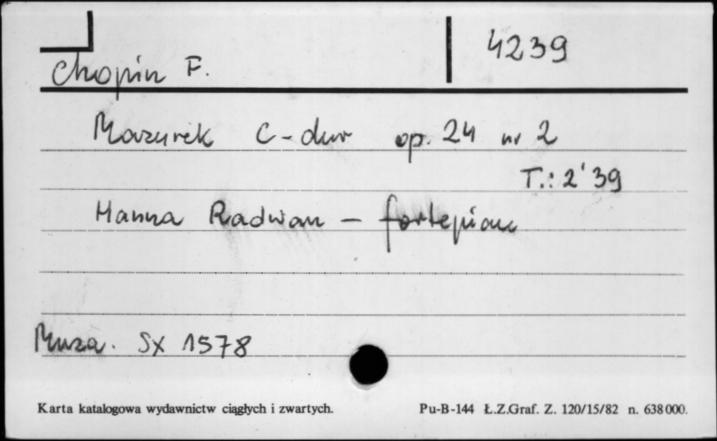 Chopin F. 4239
Mazurek C-dur op. 24 nr 2
T.: 2'39
Hanna Radwan - fortepian
Muza. SX 1578
Karta katalogowa wydawnictw ciągłych i zwartych. Pu-B-144 Ł.Z.Graf. Z. 120/15/82 n. 638000.